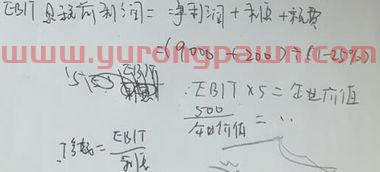 EBIT 息税前利润 = 净利润 + 利息 + 税费
= (9000 + 200) ÷ (1-25%)
www.yurongpawn.com
EBIT × 5 = 企业价值
500
企业价值 = ...
EBIT
= 利息